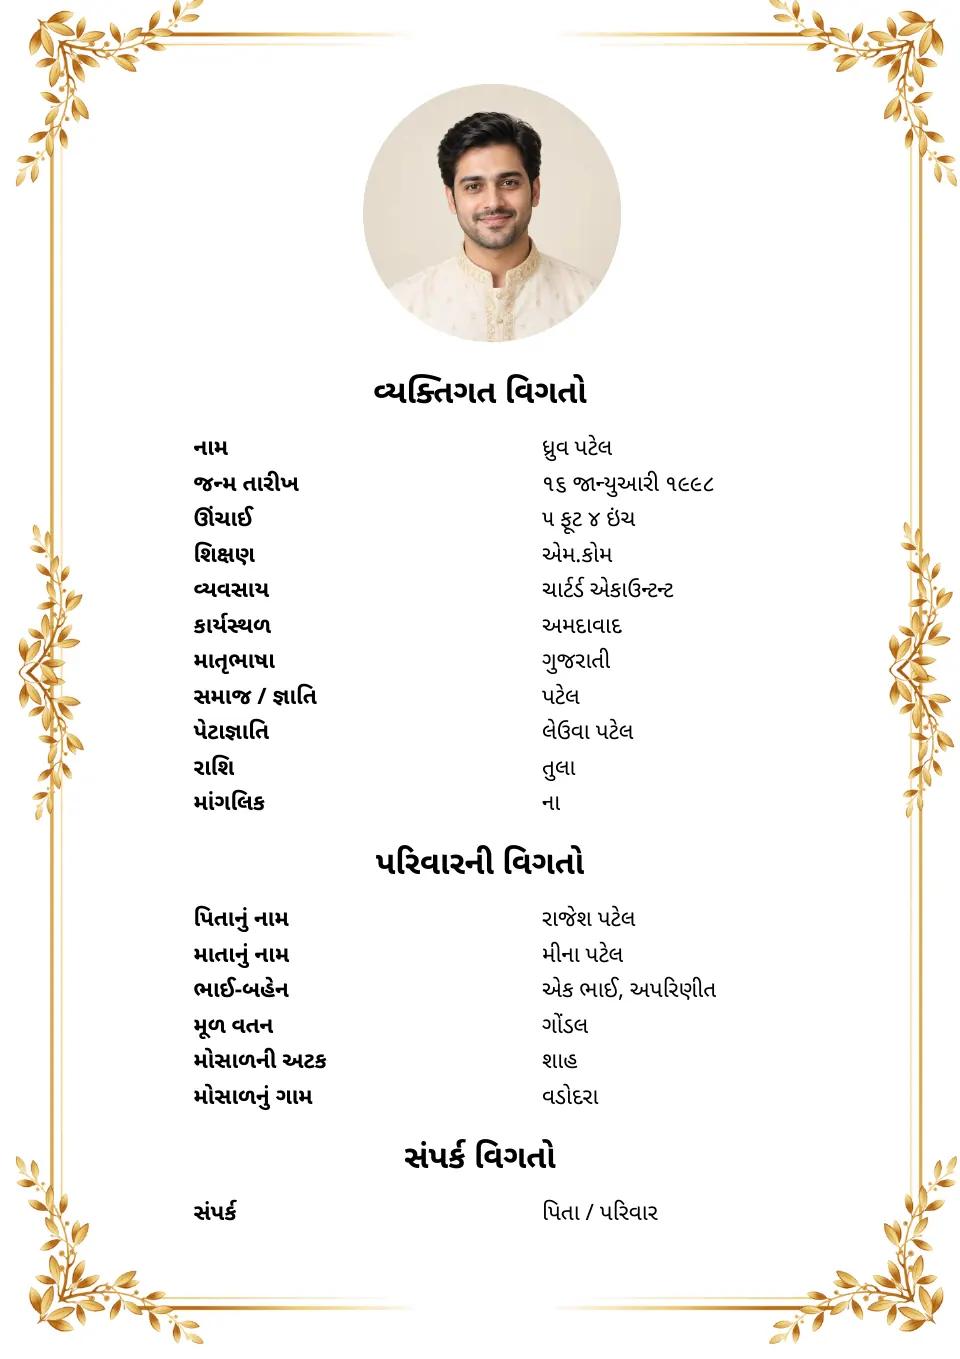 વ્યક્તિગત વિગતો
નામ ધ્રુવ પટેલ
જન્મ તારીખ ૧૬ જાન્યુઆરી ૧૯૯૮
ઊંચાઈ ૫ ફૂટ ૪ ઇંચ
શિક્ષણ એમ.કોમ
વ્યવસાય ચાર્ટર્ડ એકાઉન્ટન્ટ
કાર્યસ્થળ અમદાવાદ
માતૃભાષા ગુજરાતી
સમાજ / જ્ઞાતિ પટેલ
પેટાજ્ઞાતિ લેઉવા પટેલ
રાશિ તુલા
માંગલિક ના
પરિવારની વિગતો
પિતાનું નામ રાજેશ પટેલ
માતાનું નામ મીના પટેલ
ભાઈ-બહેન એક ભાઈ, અપરિણીત
મૂળ વતન ગોંડલ
મોસાળની અટક શાહ
મોસાળનું ગામ વડોદરા
સંપર્ક વિગતો
સંપર્ક પિતા / પરિવાર